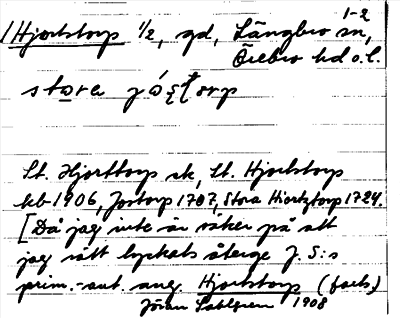 1-2
/Hjortstorp 1/2, gd, Längbro sn,
Örebro hd o. l.
stora jo̜ṣṭorp
St. Hjorttorp ek, St. Hjortstorp
kb 1906, Jostorp 1707, Stora Hiortztorp 1724.
[Då jag inte är säker på att
jag rätt lyckats återge J. S:s
prim.-ant. ang. Hjortstorp (forts.)
Jöran Sahlgren 1908